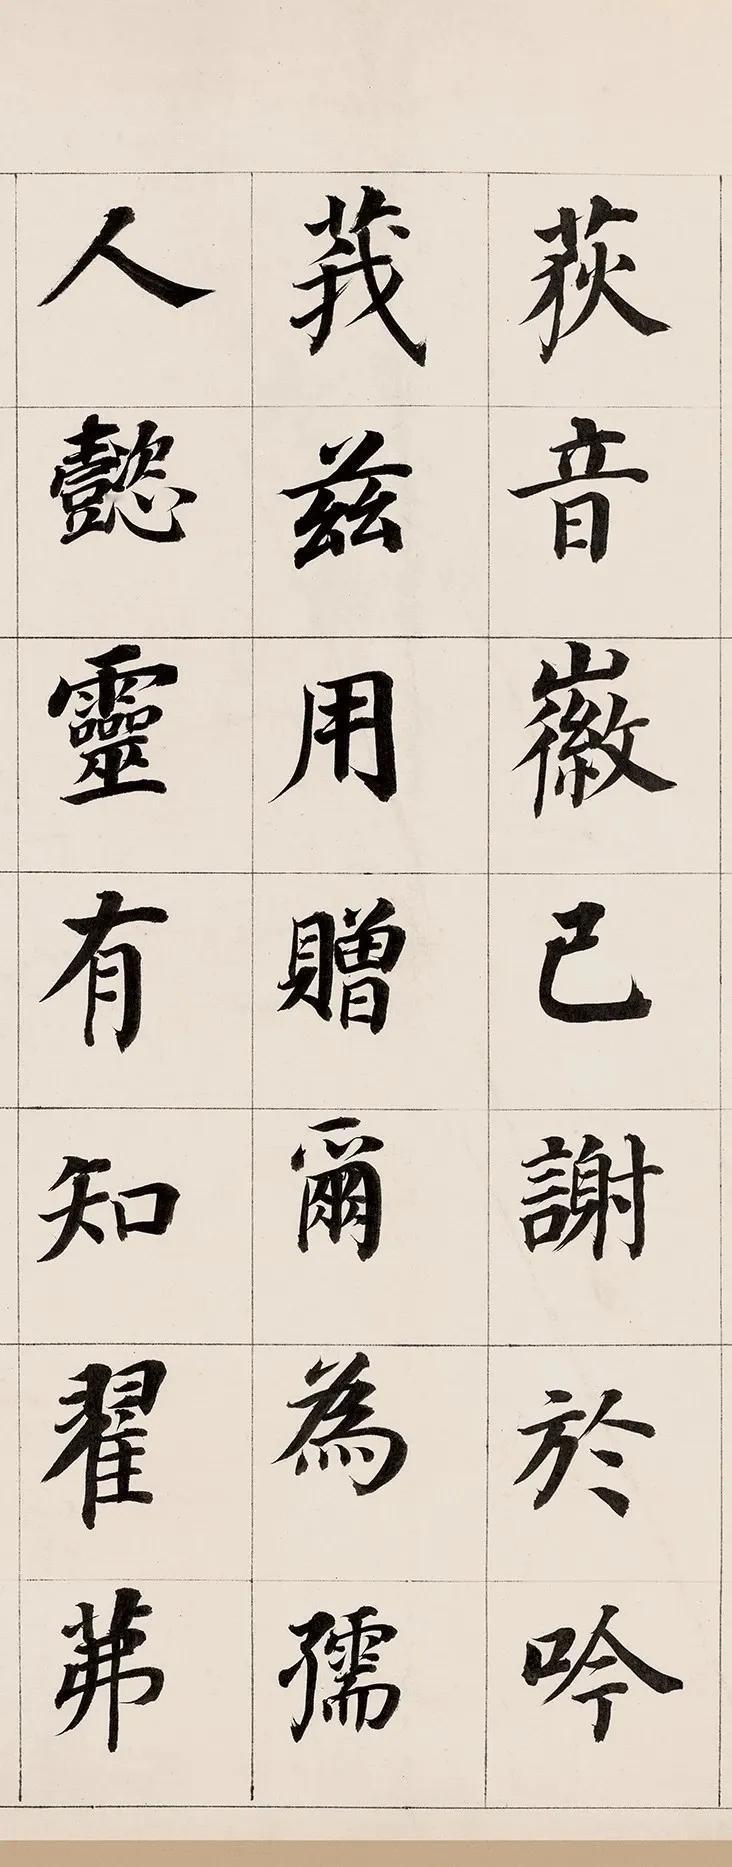 荻音徽已謝於吟
莪兹用贈爾為孺
人懿靈有知翟茀